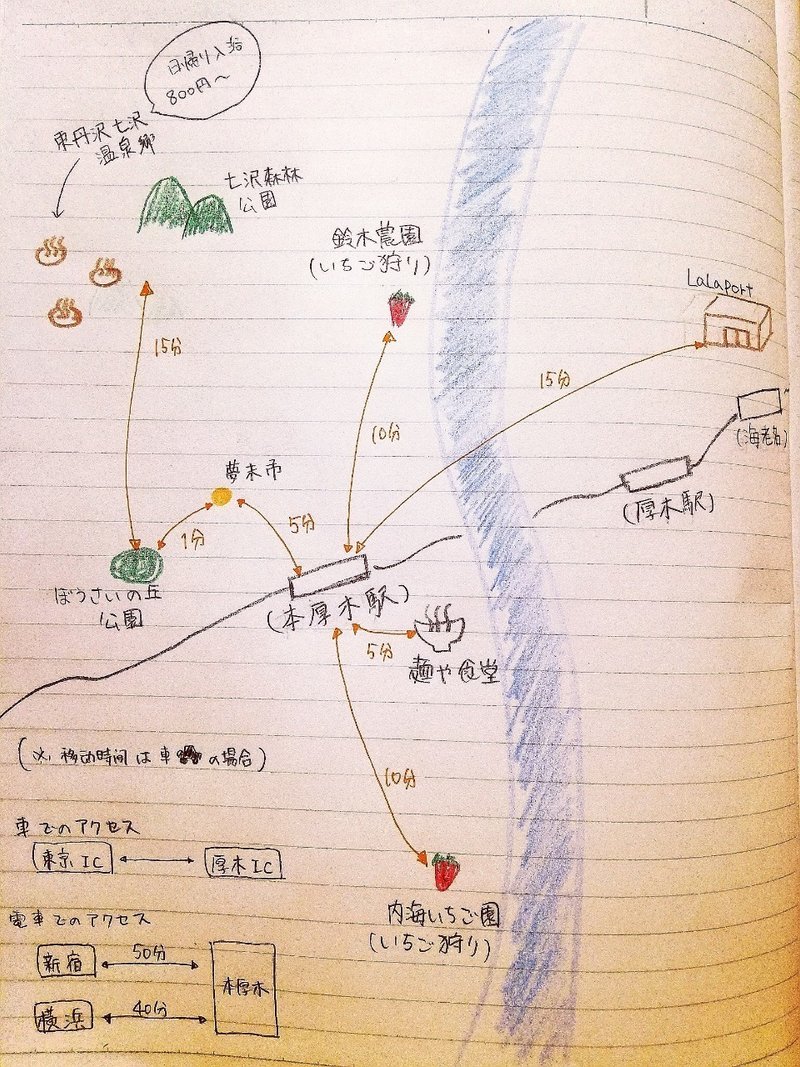 日帰り入浴
800円〜
東丹沢七沢
温泉郷
七沢森林
公園
鈴木農園
(いちご狩り)
LaLaport
15分
10分
15分
(海老名)
夢未市
(厚木駅)
1分
5分
ぼうさいの丘
公園
(本厚木駅)
5分
麺や食堂
(※ 移動時間は車の場合)
10分
車でのアクセス
東京IC
厚木IC
内海いちご園
(いちご狩り)
電車でのアクセス
新宿
50分
本厚木
横浜
40分